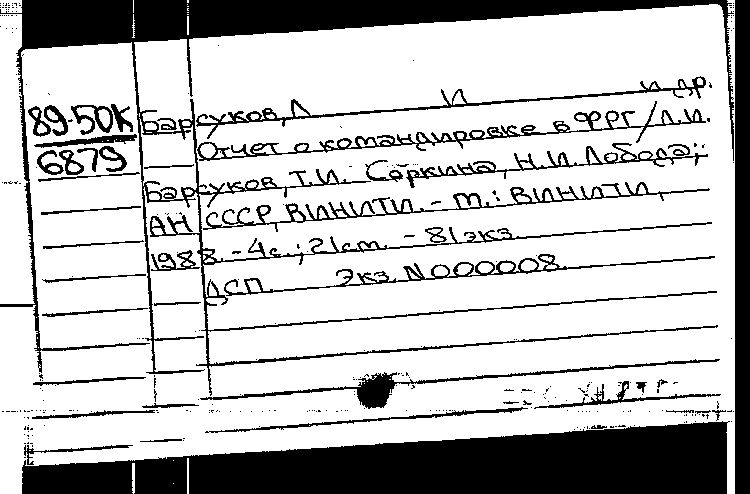 89-50К Барсуков, Л И и др.
6879 Отчет о командировке в ФРГ/Л.И.
Барсуков, Т.И. Саркина, Н.И. Лобода;
АН СССР, ВИНИТИ. - М.: ВИНИТИ,
1988. - 4с.; 21см. - 81экз.
ДСП. Экз. N000008.